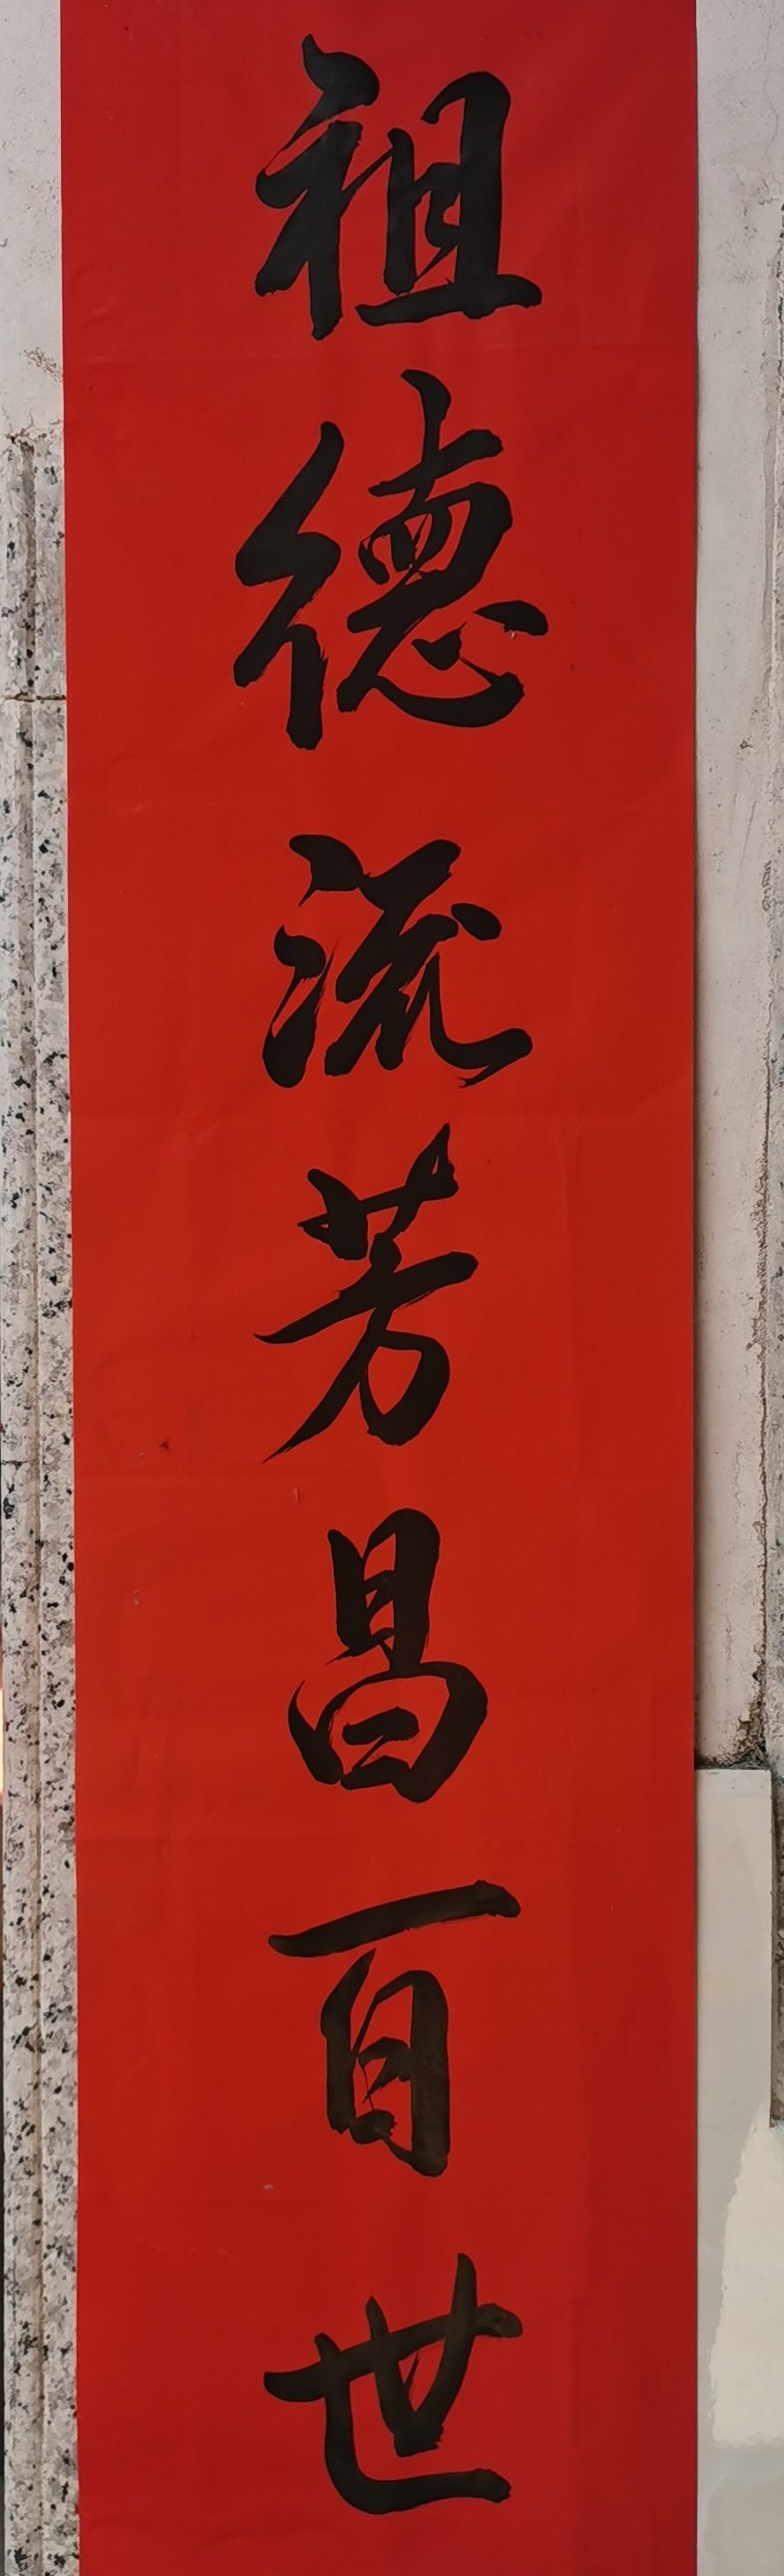 祖德流芳昌百世